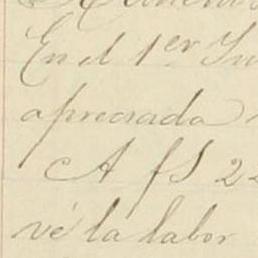 En el 1er Ju
apreciada
A fS 22
vé la labor